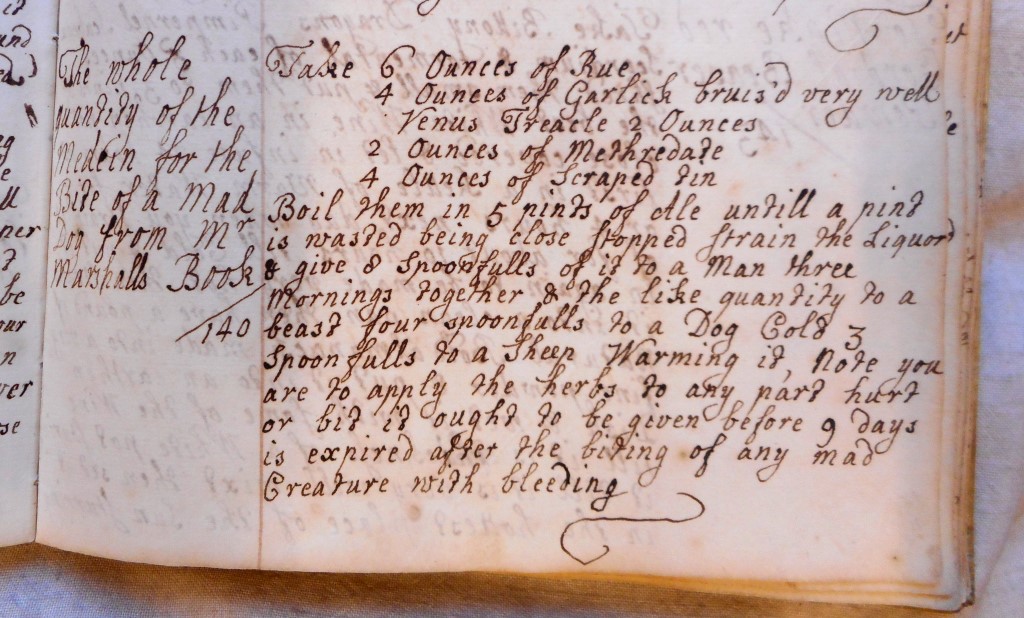 The whole
quantity of the
Medcin for the
Bite of a Mad
Dog from Mr
Marshalls Book
140
Take 6 Ounces of Rue
4 Ounces of Garlick bruis'd very well
Venus Treacle 2 Ounces
2 Ounces of Methredate
4 Ounces of Scraped tin
Boil them in 5 pints of Ale untill a pint
is wasted being close stopped strain the Liquor
& give 8 spoonfulls of it to a Man three
Mornings together & the like quantity to a
beast four spoonfulls to a Dog Cold 3
Spoonfulls to a Sheep Warming it, Note you
are to apply the herbs to any part hurt
or bit it ought to be given before 9 days
is expired after the biting of any mad
Creature with bleeding